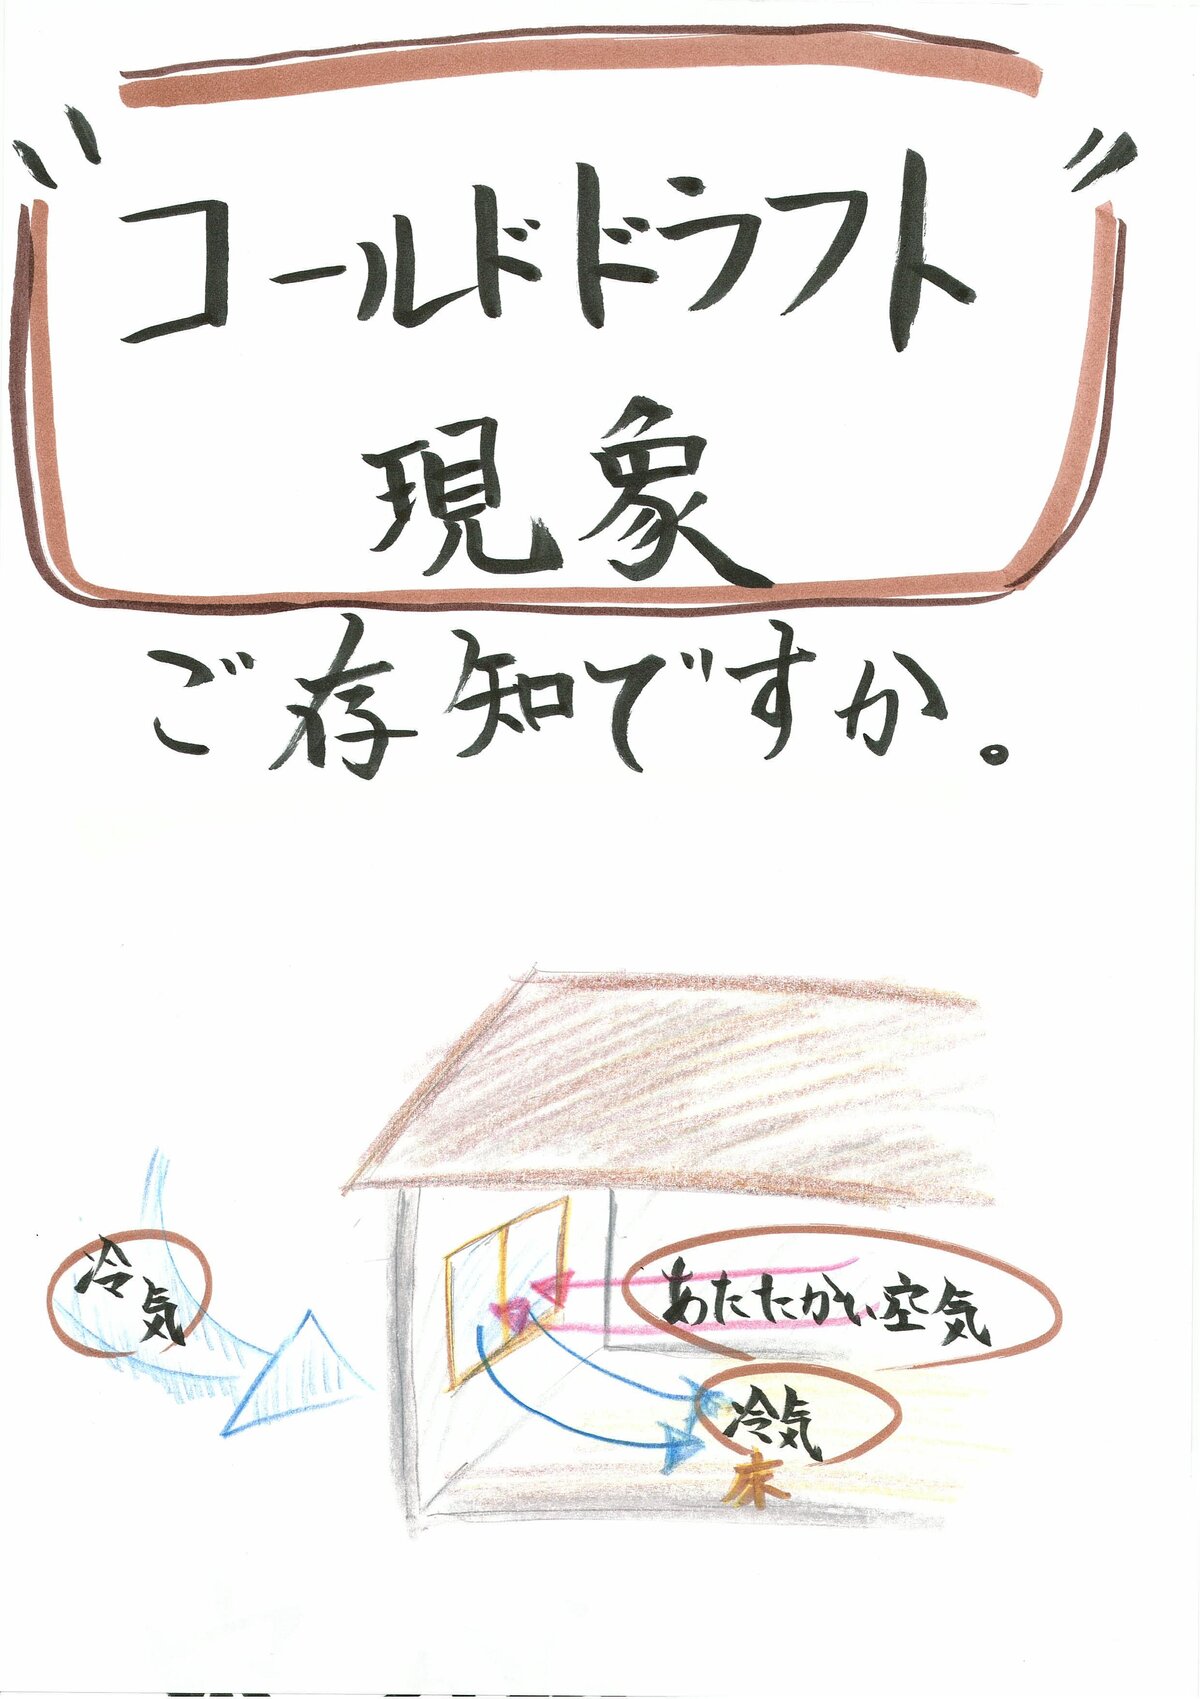 "コールドドラフト"
現象
ご存知ですか。
冷気
あたたかい空気
冷気
床